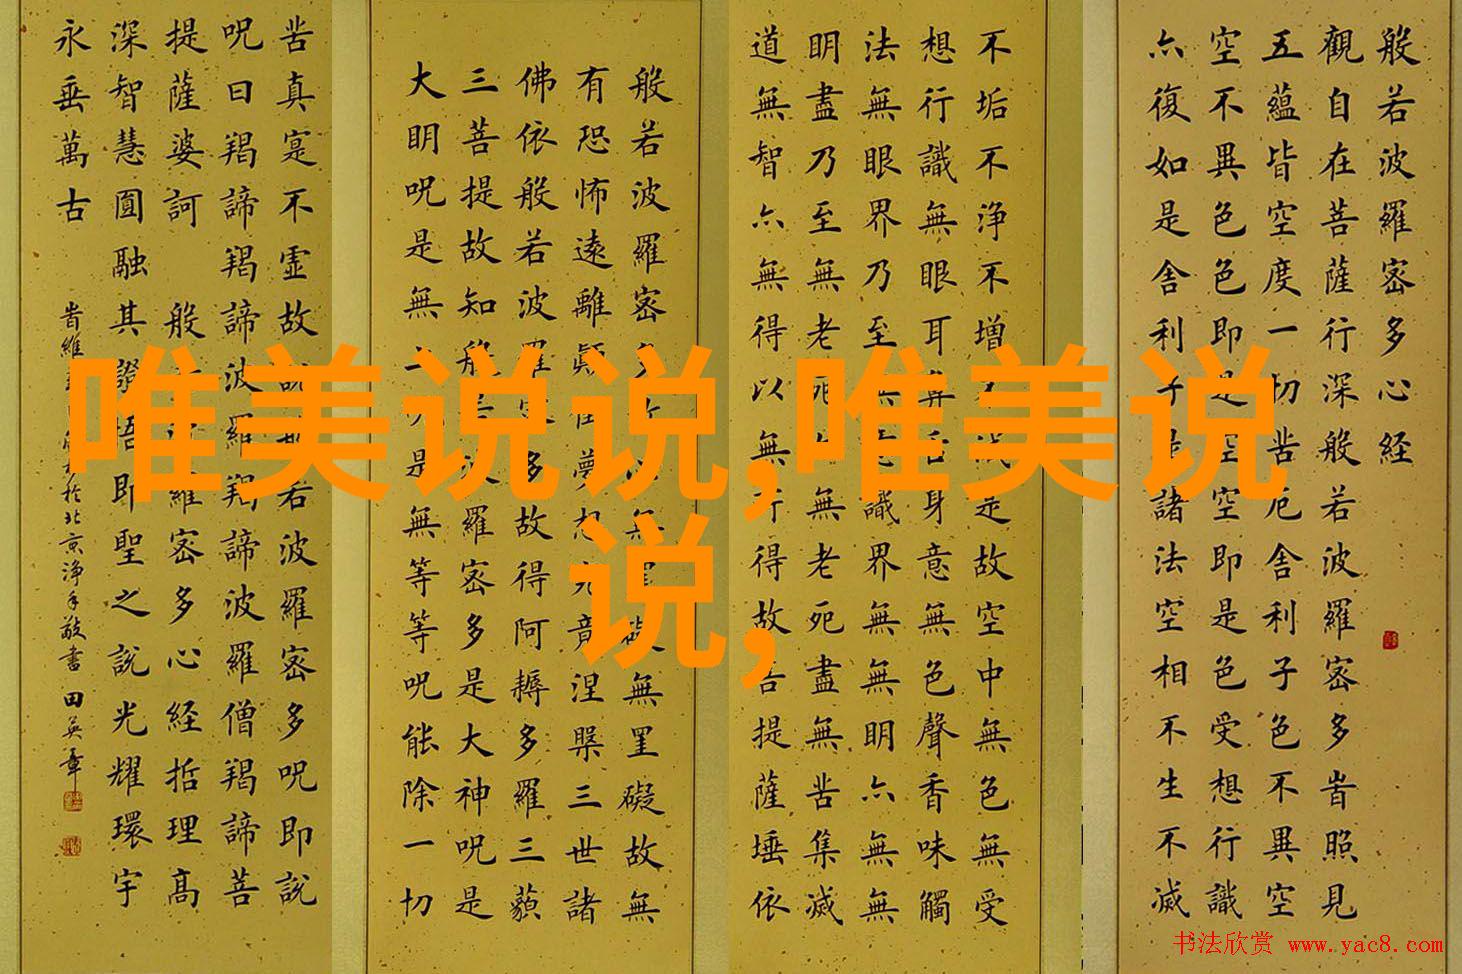 般若波羅密多心経
觀自在菩薩行深般若波羅密多旹照見
五蘊皆空度一切苦厄舍利子色不異空
空不異色色即是空空即是色受想行識
亦復如是舍利子是諸法空相不生不滅
不垢不浄不增不減是故空中無色無受
想行識無眼耳鼻舌身意無色聲香味觸
法無眼界乃至無意識界無無明亦無無
明盡乃至無老死亦無老死盡無苦集滅
道無智亦無得以無所得故菩提薩埵依
般若波羅密多故心無罣礙無罣礙故無
有恐怖遠離顛倒夢想究竟涅槃三世諸
佛依般若波羅密多故得阿耨多羅三藐
三菩提故知般若波羅密多是大神呪是
大明呪是無上呪是無等等呪能除一切
苦真寔不虛故說般若波羅密多呪即説
呪曰羯諦羯諦波羅羯諦波羅僧羯諦菩
提薩婆訶 般若波羅密多心経括理高
深智慧圓融其證悟即聖之説光耀環宇
永垂萬古
旹維 於北京淨手敬書 田英章
唯美说说,唯美说
说,
书法欣赏 www.yac8.com